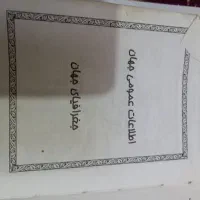 اطلاعات عمومی جهان
جغرافیای جهان